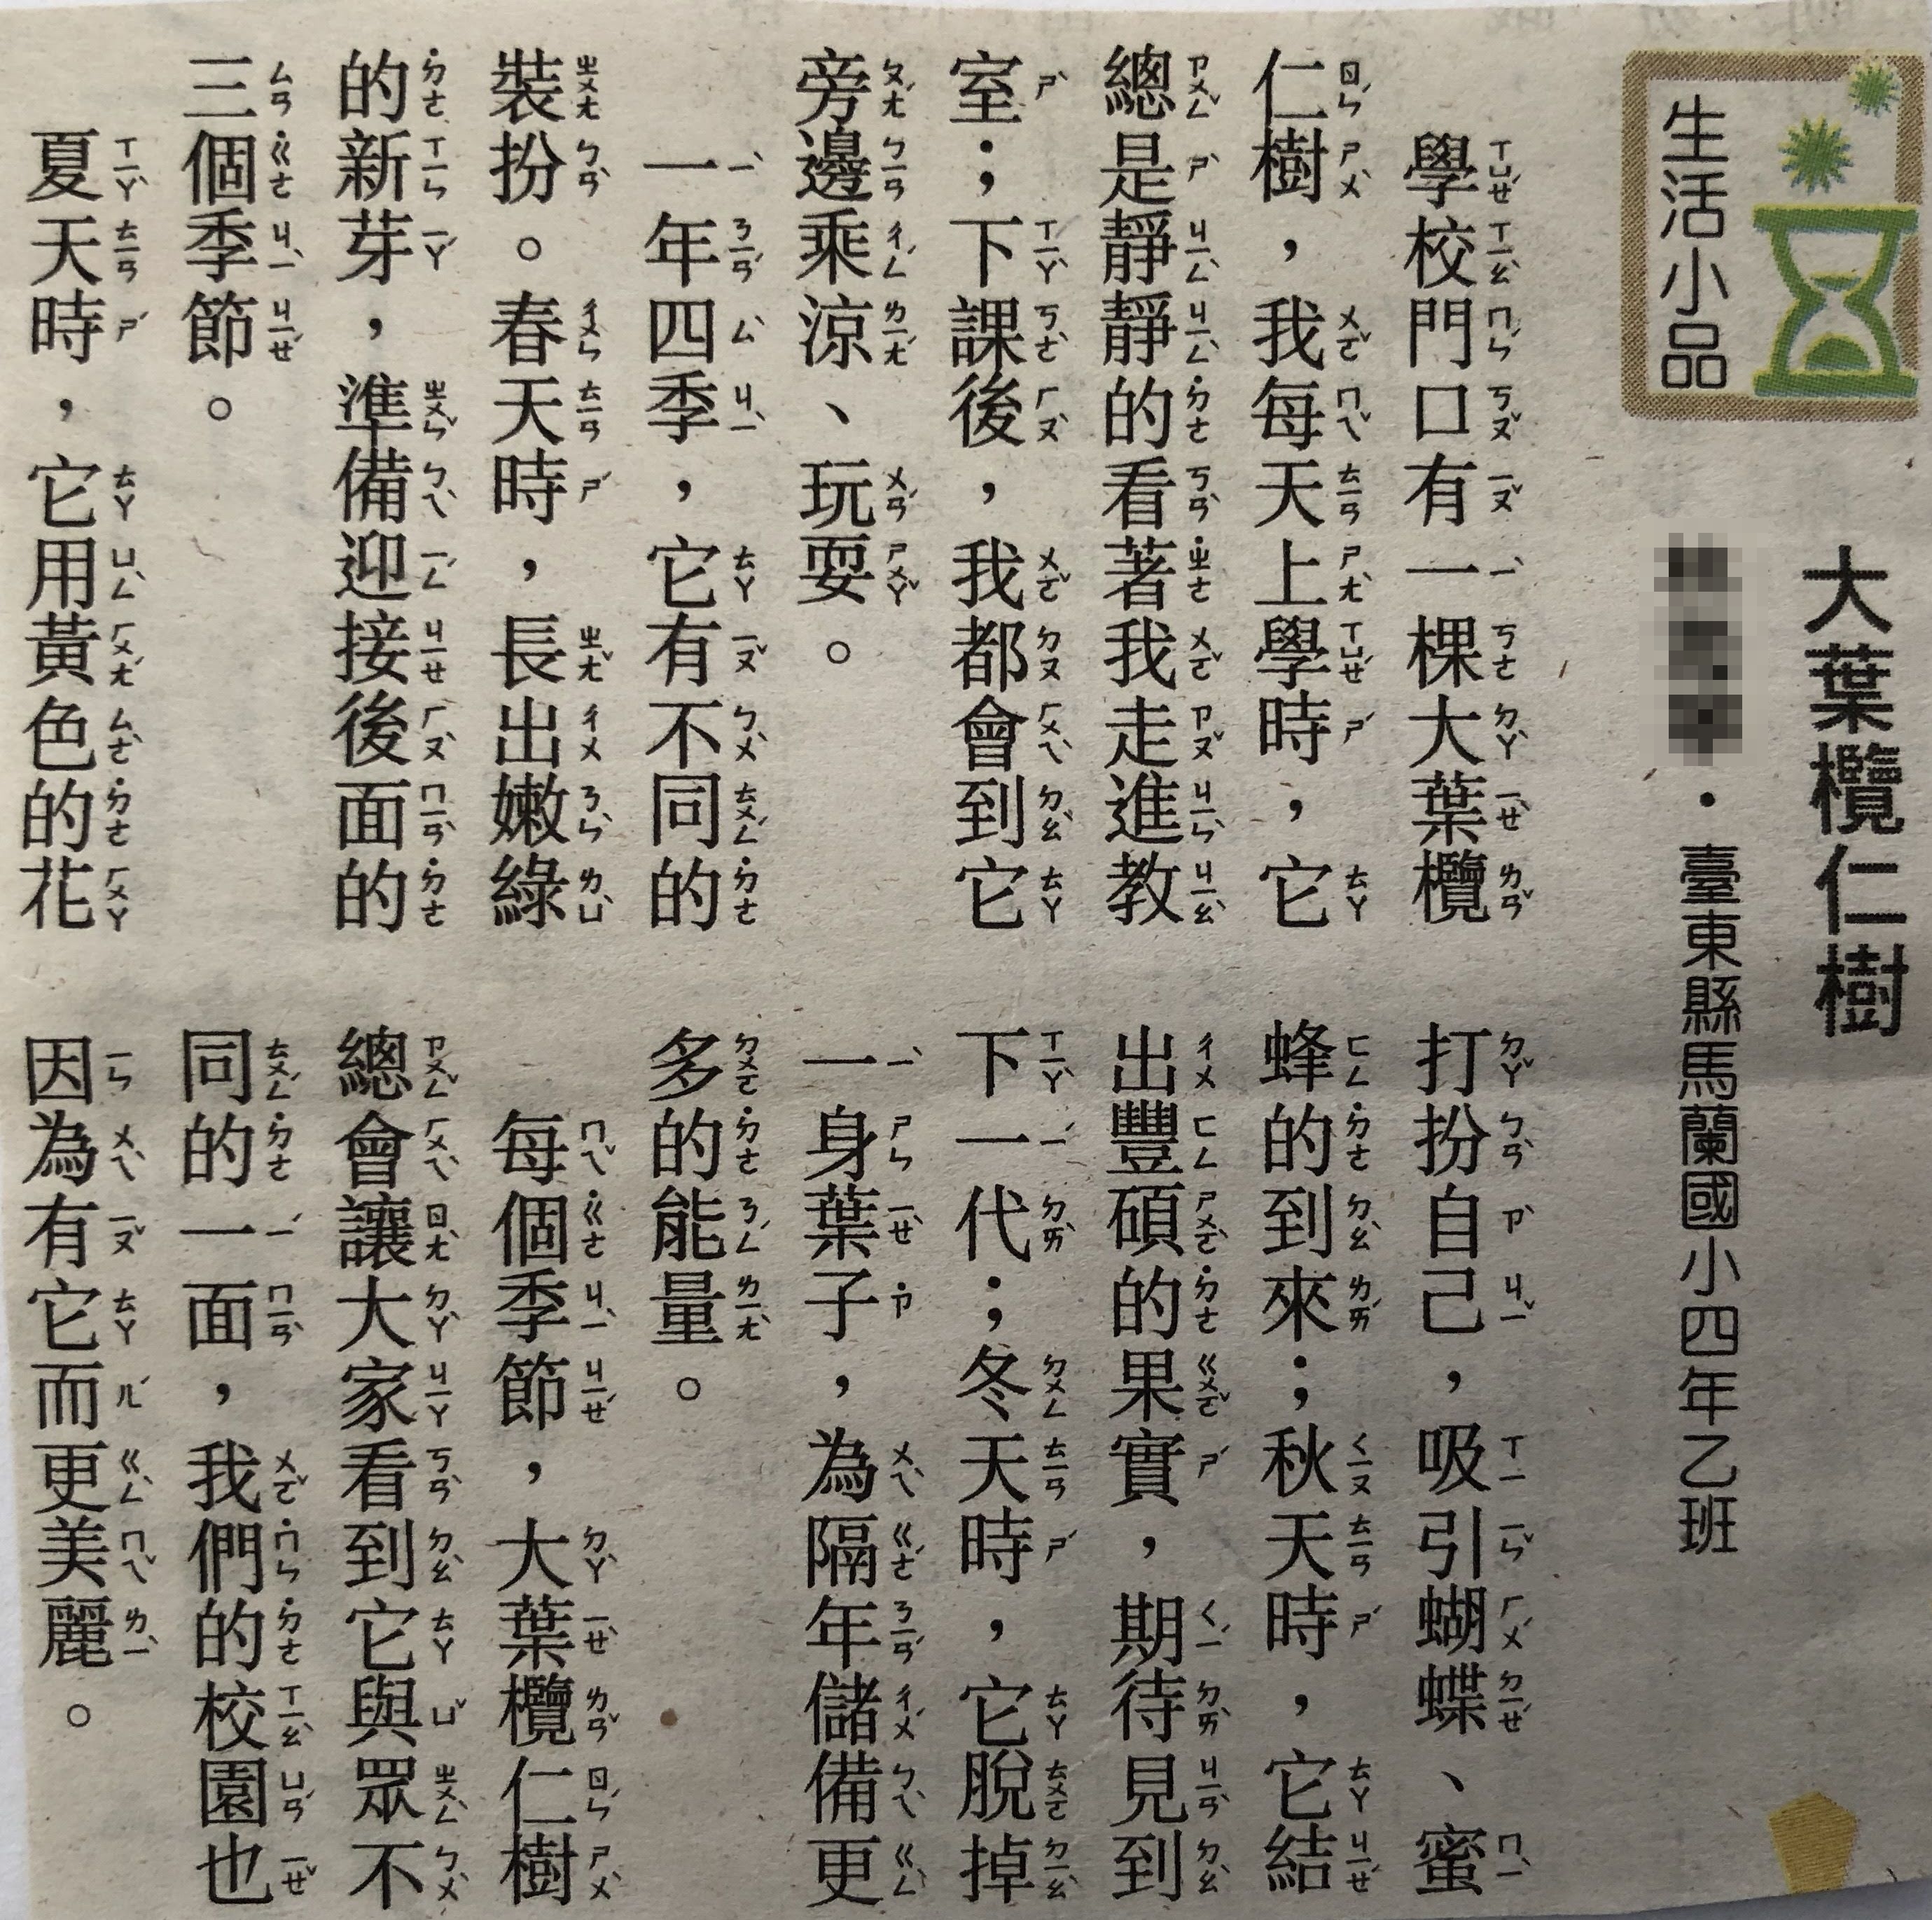 生活小品
大葉欖仁樹
・臺東縣馬蘭國小四年乙班
學校門口有一棵大葉欖
仁樹，我每天上學時，它
總是靜靜的看著我走進教
室；下課後，我都會到它
旁邊乘涼、玩耍。
一年四季，它有不同的
裝扮。春天時，長出嫩綠
的新芽，準備迎接後面的
三個季節。
夏天時，它用黃色的花
打扮自己，吸引蝴蝶、蜜
蜂的到來；秋天時，它結
出豐碩的果實，期待見到
下一代；冬天時，它脫掉
一身葉子，為隔年儲備更
多的能量。
每個季節，大葉欖仁樹
總會讓大家看到它與眾不
同的一面，我們的校園也
因為有它而更美麗。